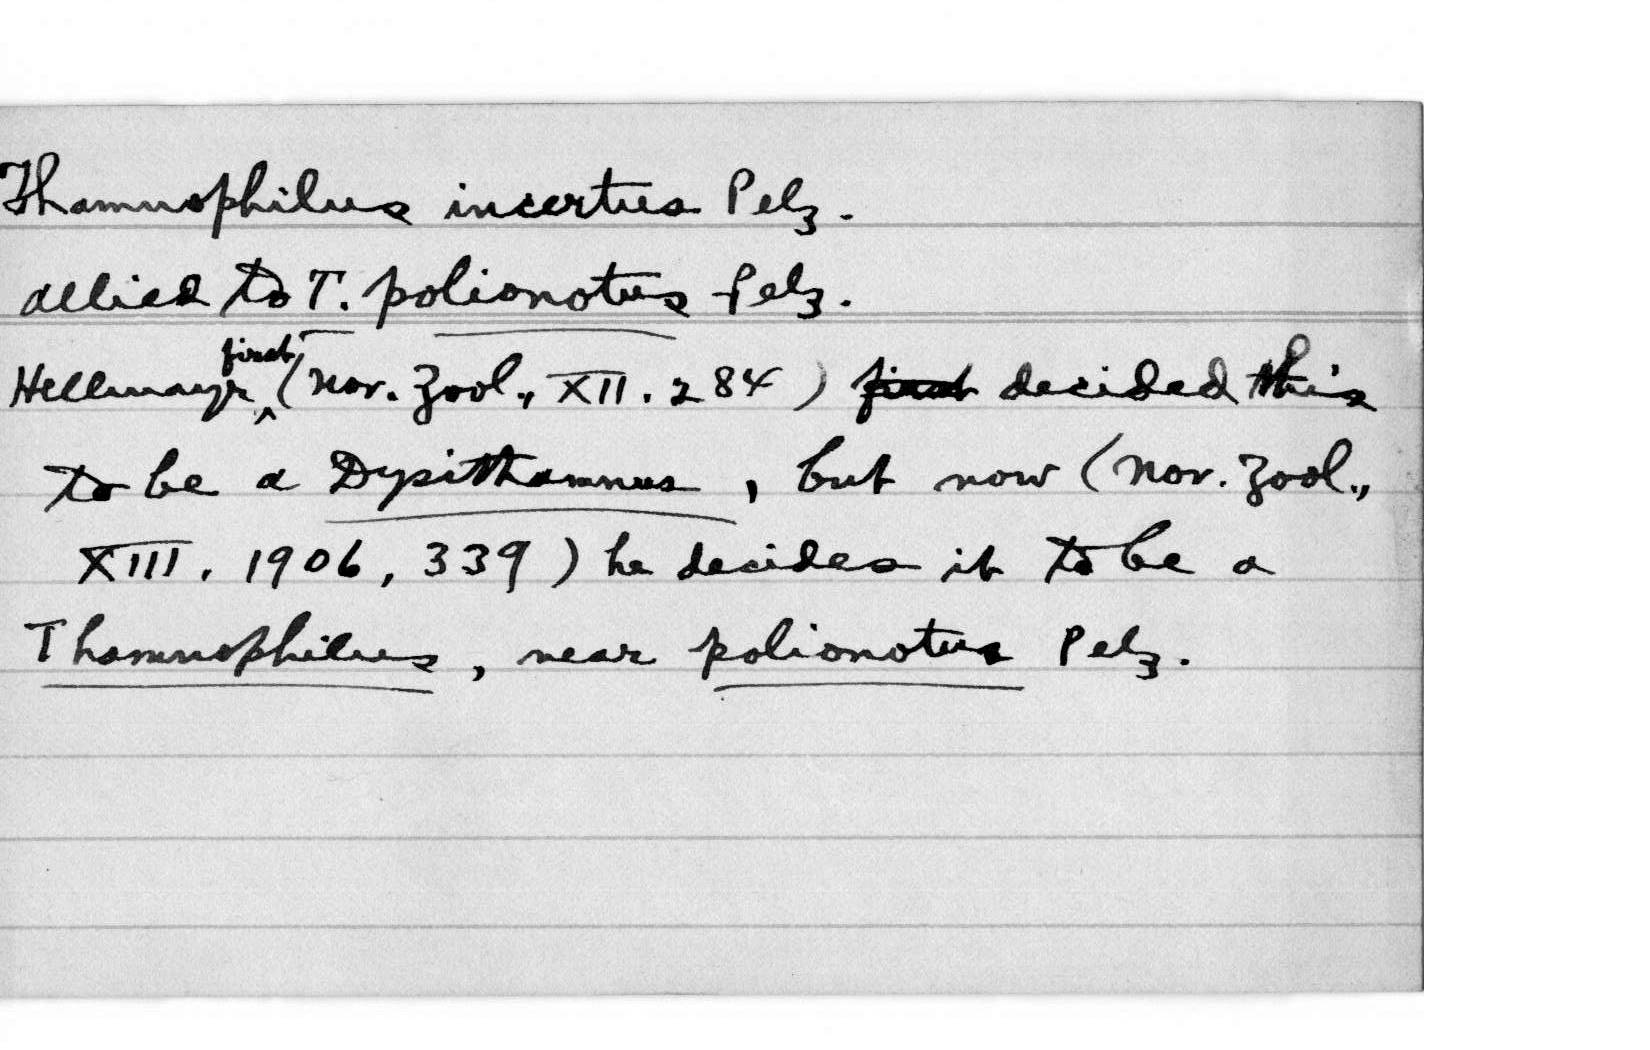 Thamnophilus incertus Pelz.
allied to T. polionotus Pelz.
Hellmayr first (Nov. Zool., XII. 284) first decided this
to be a Dysithamnus, but now (Nov. Zool.,
XIII. 1906, 339) he decides it to be a
Thamnophilus, near polionotus Pelz.